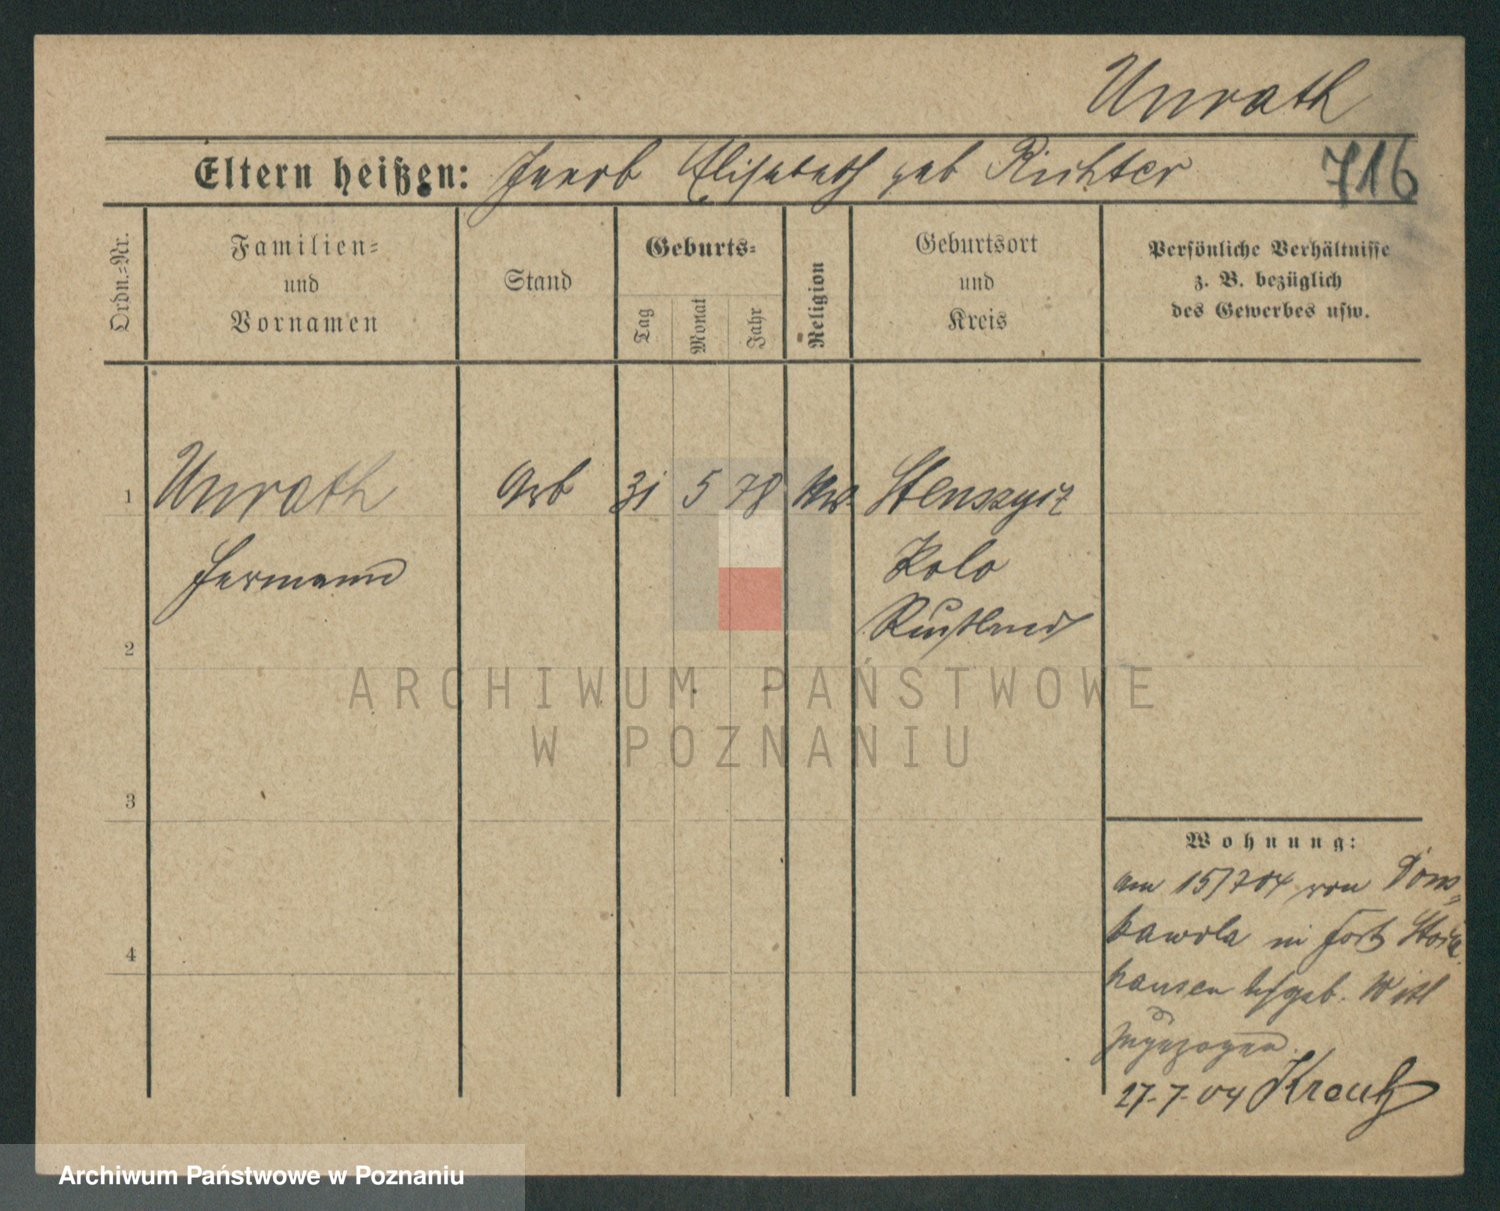 Unrath
Eltern heißen: Jacob Elisabeth geb Richter 716
Ordn.-Nr.
Familien-
und
Vornamen
Stand
Geburts-
Tag
Monat
Jahr
Religion
Geburtsort
und
Kreis
Persönliche Verhältnisse
z. B. bezüglich
des Gewerbes usw.
1 Unrath Arb 31 5 78
Hermann
Kolo
Rußland
2
3
4
Wohnung:
am 15/7 04 von
in
zugezogen
27-7-04
ARCHIWUM PAŃSTWOWE
W POZNANIU
Archiwum Państwowe w Poznaniu